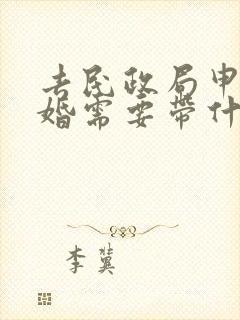 去民政局申
婚需要带什
李冀